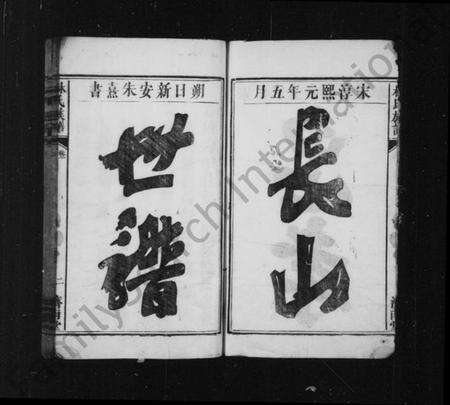 宋淳熙元年五月
長山
朔日新安朱熹書
世譜
林氏族譜
FamilySearch International